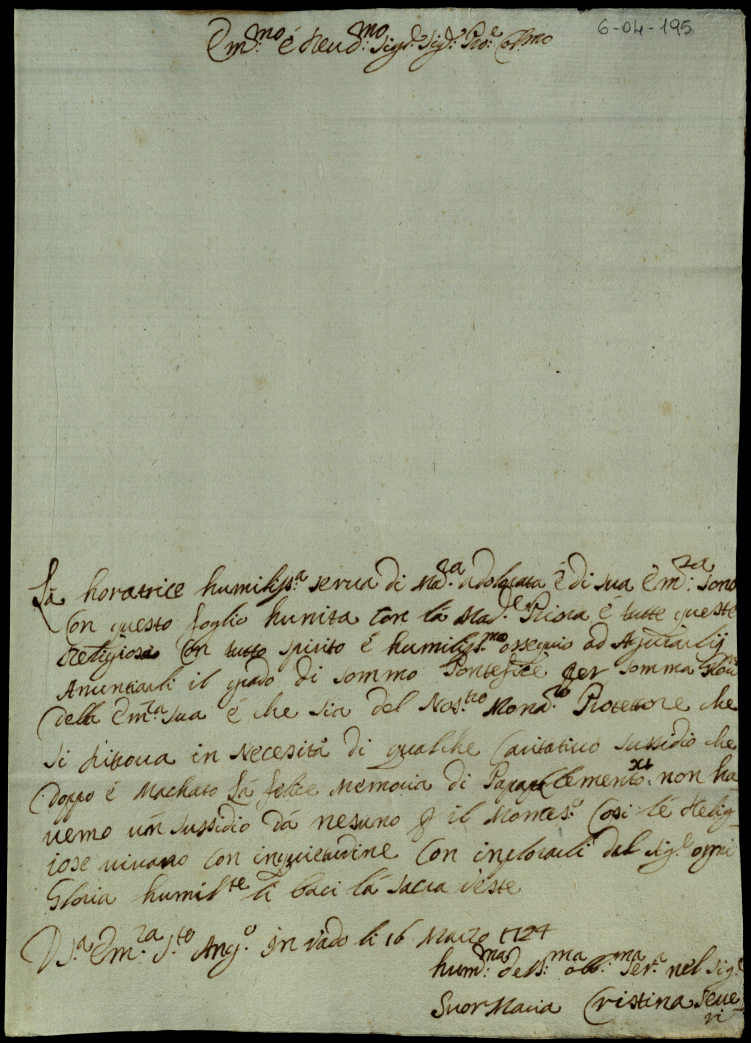 6-04-195
Em.mo é Reud.mo Sig.r Sig.r Pro.e Col.mo
La horatrice humiliss.a serua di Mad.a adolorata é di sua Em.za sono
con questo foglio hunita con la Mad.e Priora e tutte queste
Religiose con tutto spirito é humiliss.mo ossequio ad
Anuntiarli il grado di sommo Pontefice per somma Gloria
della Em.za sua é che sia del Nos.tro Mona.ro Protettore che
si ritroua in Necesita di qualche Caritatiuo sussidio che
doppo é Machato La felice Memoria di Papa Clemento XI non ha
uemo un sussidio da nesuno il Mones.o Cosi le Relig
iose uiuano con inquietudine con inplorarli dal Sig.e ogni
Gloria humil.te li baci la sacra ueste
D S.a Em.za S.to Ang.o in uado li 16 Marzo 1724
hum.ma deu.ma obl.ma ser.a nel Sig.e
Suor Maria Cristina Seue
ri